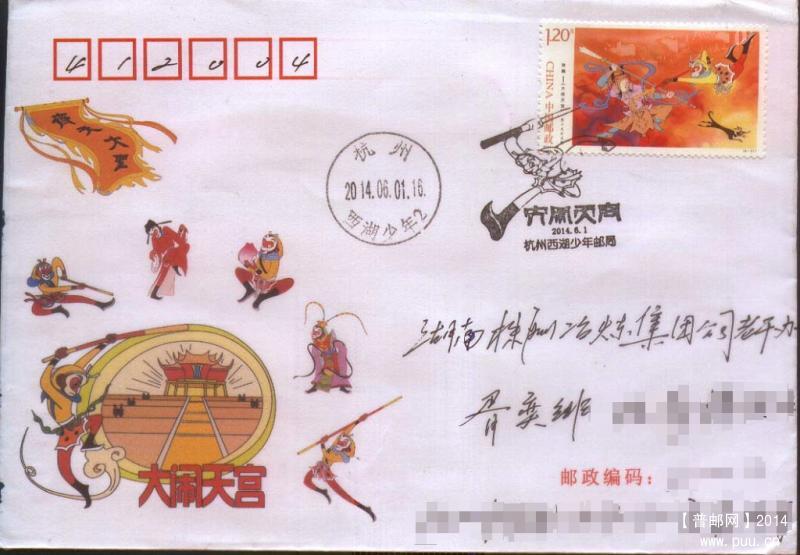 412004
1.20元
CHINA 中国邮政
齐天大圣
杭州
2014.06.01.16
西湖少年2
大闹天宫
2014.6.1
杭州西湖少年邮局
湖南株洲冶炼集团公司老干办
大闹天宫
邮政编码:
【普邮网】2014
www.puu.cn